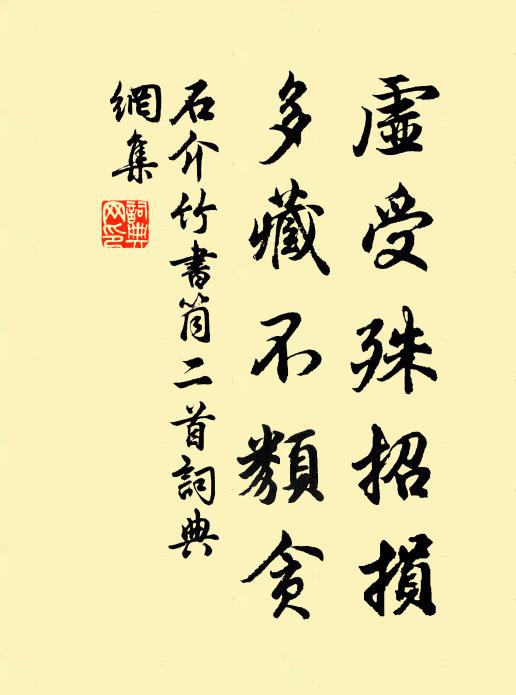 虛受殊招損
多藏不類貪
石介竹書筒二首詞典
網集
詞典網印